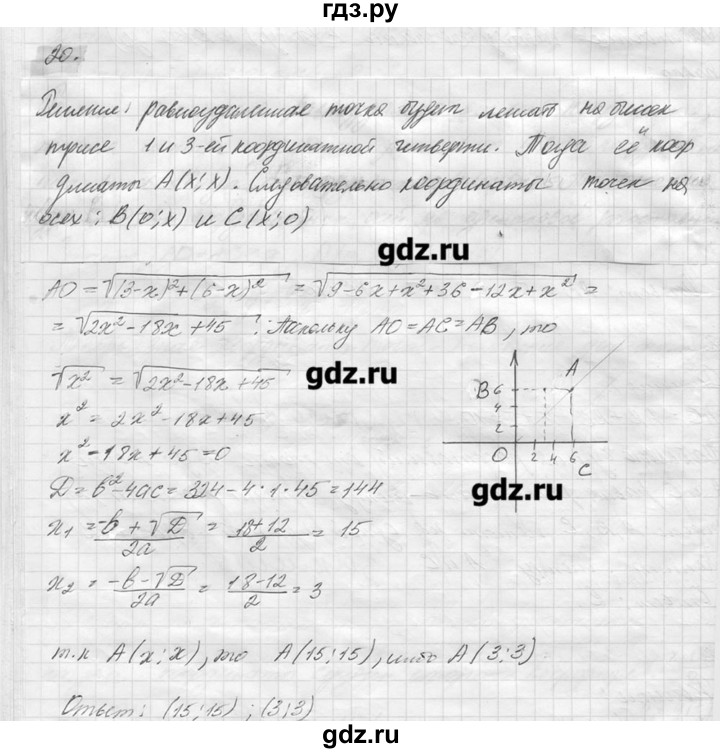 гдз.ру
20.
Решение: равноудаленная точка будет лежать на биссек
трисе 1 и 3-ей координатной четверти. Тогда её коор
динаты A(x;x). Следовательно координаты точек на
осях: B(0;x) и C(x;0)
gdz.ru
AO = √(3-x)²+(6-x)² = √9-6x+x²+36-12x+x² =
= √2x²-18x+45 ; Поскольку AO=AC=AB, то
√x² = √2x²-18x+45
gdz.ru
x² = 2x²-18x+45
x²-18x+45=0
D=b²-4ac=324-4·1·45=144
x₁ = -b+√D / 2a = 18+12 / 2 = 15
x₂ = -b-√D / 2a = 18-12 / 2 = 3
A
B 6
4
2
O 2 4 6
C
gdz.ru
т.к A(x;x), то A(15;15), либо A(3;3)
Ответ: (15;15) ; (3;3)
gdz.ru